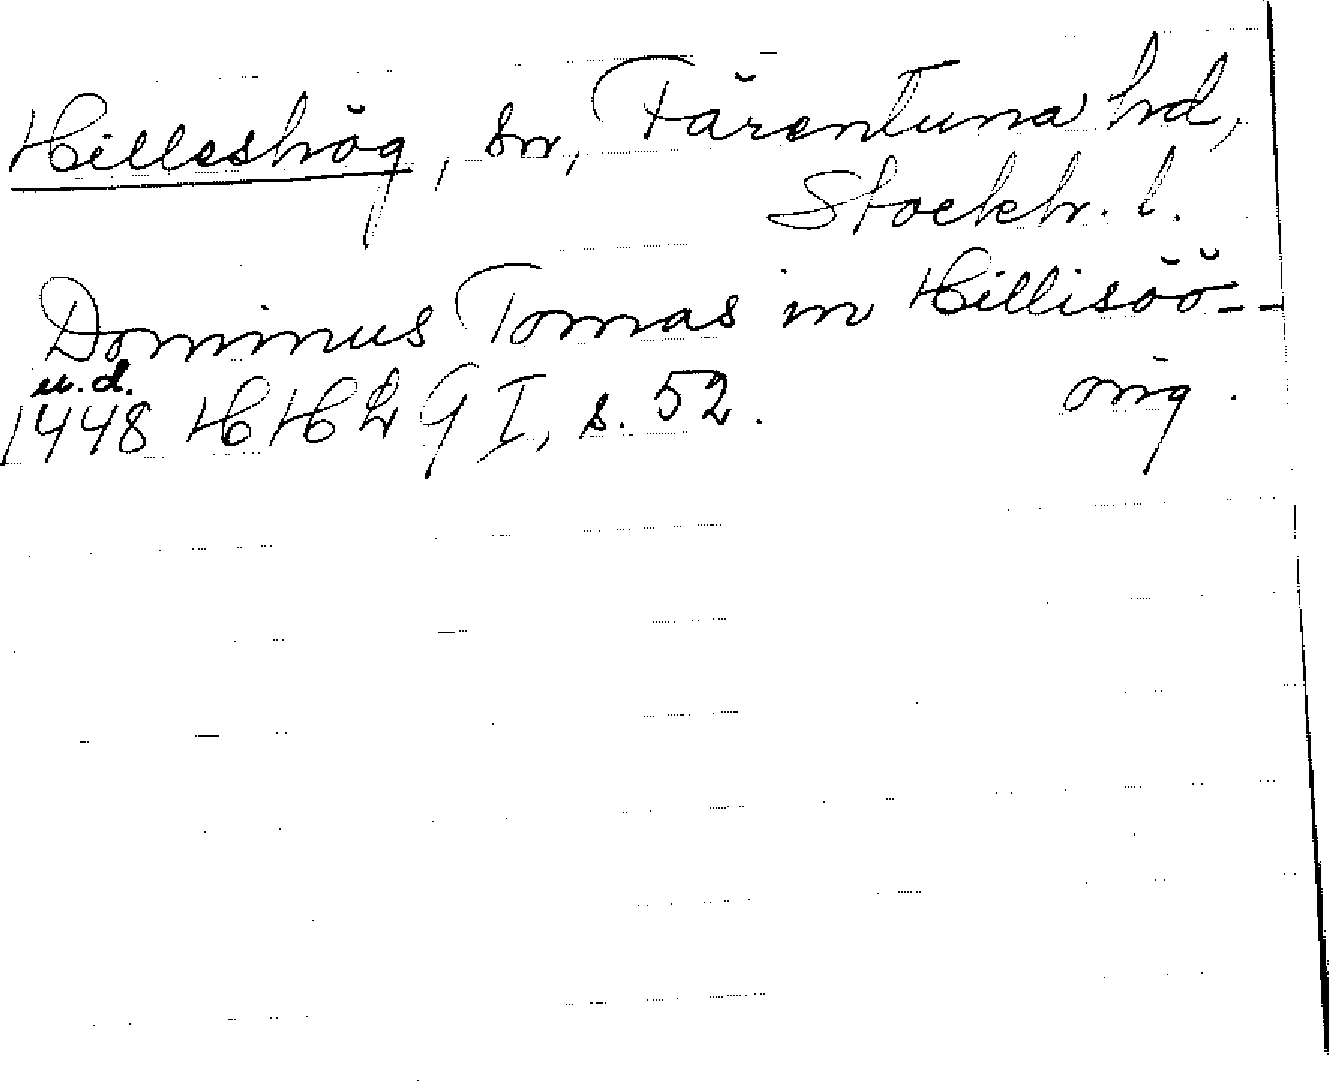 Hilleshög, sn, Färentuna hd,
Stockh. l.
Dominus Tomas in Hillisöö--
u.d.
1448 HHLG I, s. 52. orig.